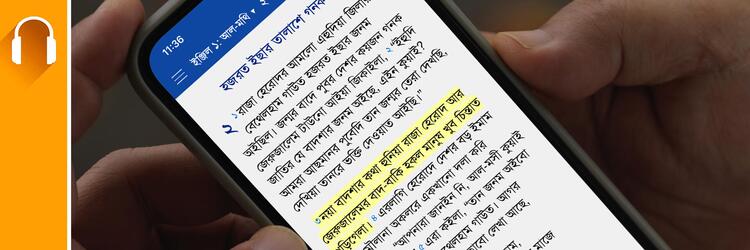 11:36
ইঞ্জিল ১: আল-মথি ২
হজরত ইছার তালাশে গনক
২ ১ রাজা হেরোদর আমলো এহুদিয়া জিলার
বেথেলহাম গাউত হজরত ইছার জনম
অইছিল। জন্মর বাদে পুবর দেশর কয়জন গনক
জেরুজালেম টাউনো আইয়া জিকাইলা, ২ "ইহুদি
জাতির যে বাদশার জনম অইছে, এইন কুয়াই?
আমরা আছমানর পুবেদি তান জন্মর তেরা দেখছি,
দেখিয়া তানরে ভক্তি দেওয়াত আইছি।"
৩ নয়া বাদশার কথা হুনিয়া রাজা হেরোদ আর
জেরুজালেমর বাদ-বাকি হকল মানুষ খুব চিন্তাত
পড়িগেলা। ৪ এরলাগি হেরোদে দেশর বড় ইমাম
মৌলানা অকলরে একখানো দলা করি
"আপনারা জানইন নি, আল-মসী কুয়াই
৫ তারা কইলা, "তান জনম অইবো
বেথেলহাম গাউত। আগর
লেখা আছে,